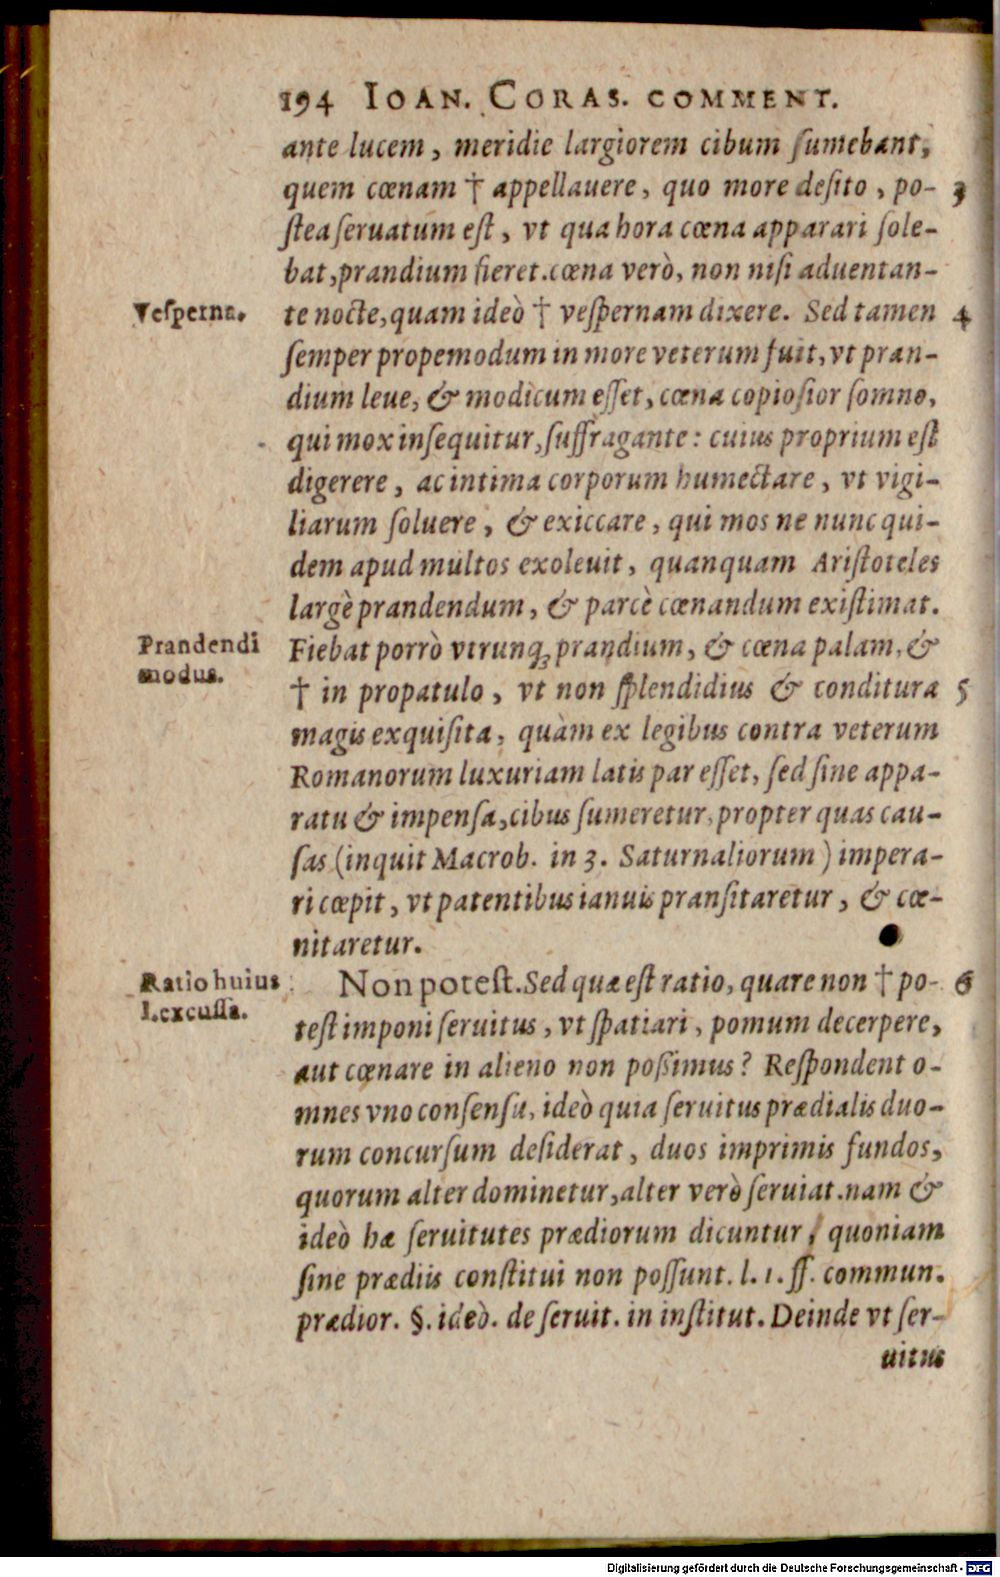 194 IOAN. CORAS. COMMENT.
ante lucem, meridie largiorem cibum ſumebant,
quem cœnam † appellauere, quo more deſito, po- 3
ſtea ſeruatum eſt, vt qua hora cœna apparari ſole-
bat, prandium fieret. cœna verò, non niſi aduentan-
Veſperna. te nocte, quam ideò † veſpernam dixere. Sed tamen 4
ſemper propemodum in more veterum fuit, vt pran-
dium leue, & modicum eſſet, cœna copioſior ſomno,
qui mox inſequitur, ſuffragante: cuius proprium eſt
digerere, ac intima corporum humectare, vt vigi-
liarum ſoluere, & exiccare, qui mos ne nunc qui-
dem apud multos exoleuit, quanquam Ariſtoteles
largè prandendum, & parcè cœnandum exiſtimat.
Prandendi Fiebat porrò vtrunq; prandium, & cœna palam, &
modus. † in propatulo, vt non ſplendidius & conditura 5
magis exquiſita, quàm ex legibus contra veterum
Romanorum luxuriam latis par eſſet, ſed ſine appa-
ratu & impenſa, cibus ſumeretur, propter quas cau-
ſas (inquit Macrob. in 3. Saturnaliorum) impera-
ri cœpit, vt patentibus ianuis pranſitaretur, & cœ-
nitaretur.
Ratio huius Non poteſt. Sed quæ eſt ratio, quare non † po- 6
l. excuſſa. teſt imponi ſeruitus, vt ſpatiari, pomum decerpere,
aut cœnare in alieno non poſſimus? Reſpondent o-
mnes vno conſenſu, ideò quia ſeruitus prædialis duo-
rum concurſum deſiderat, duos imprimis fundos,
quorum alter dominetur, alter verò ſeruiat. nam &
ideò hæ ſeruitutes prædiorum dicuntur, quoniam
ſine prædiis conſtitui non poſſunt. l. 1. ff. commun.
prædior. §. ideò. de ſeruit. in inſtitut. Deinde vt ſer-
uitus
Digitalisierung gefördert durch die Deutsche Forschungsgemeinschaft - DFG